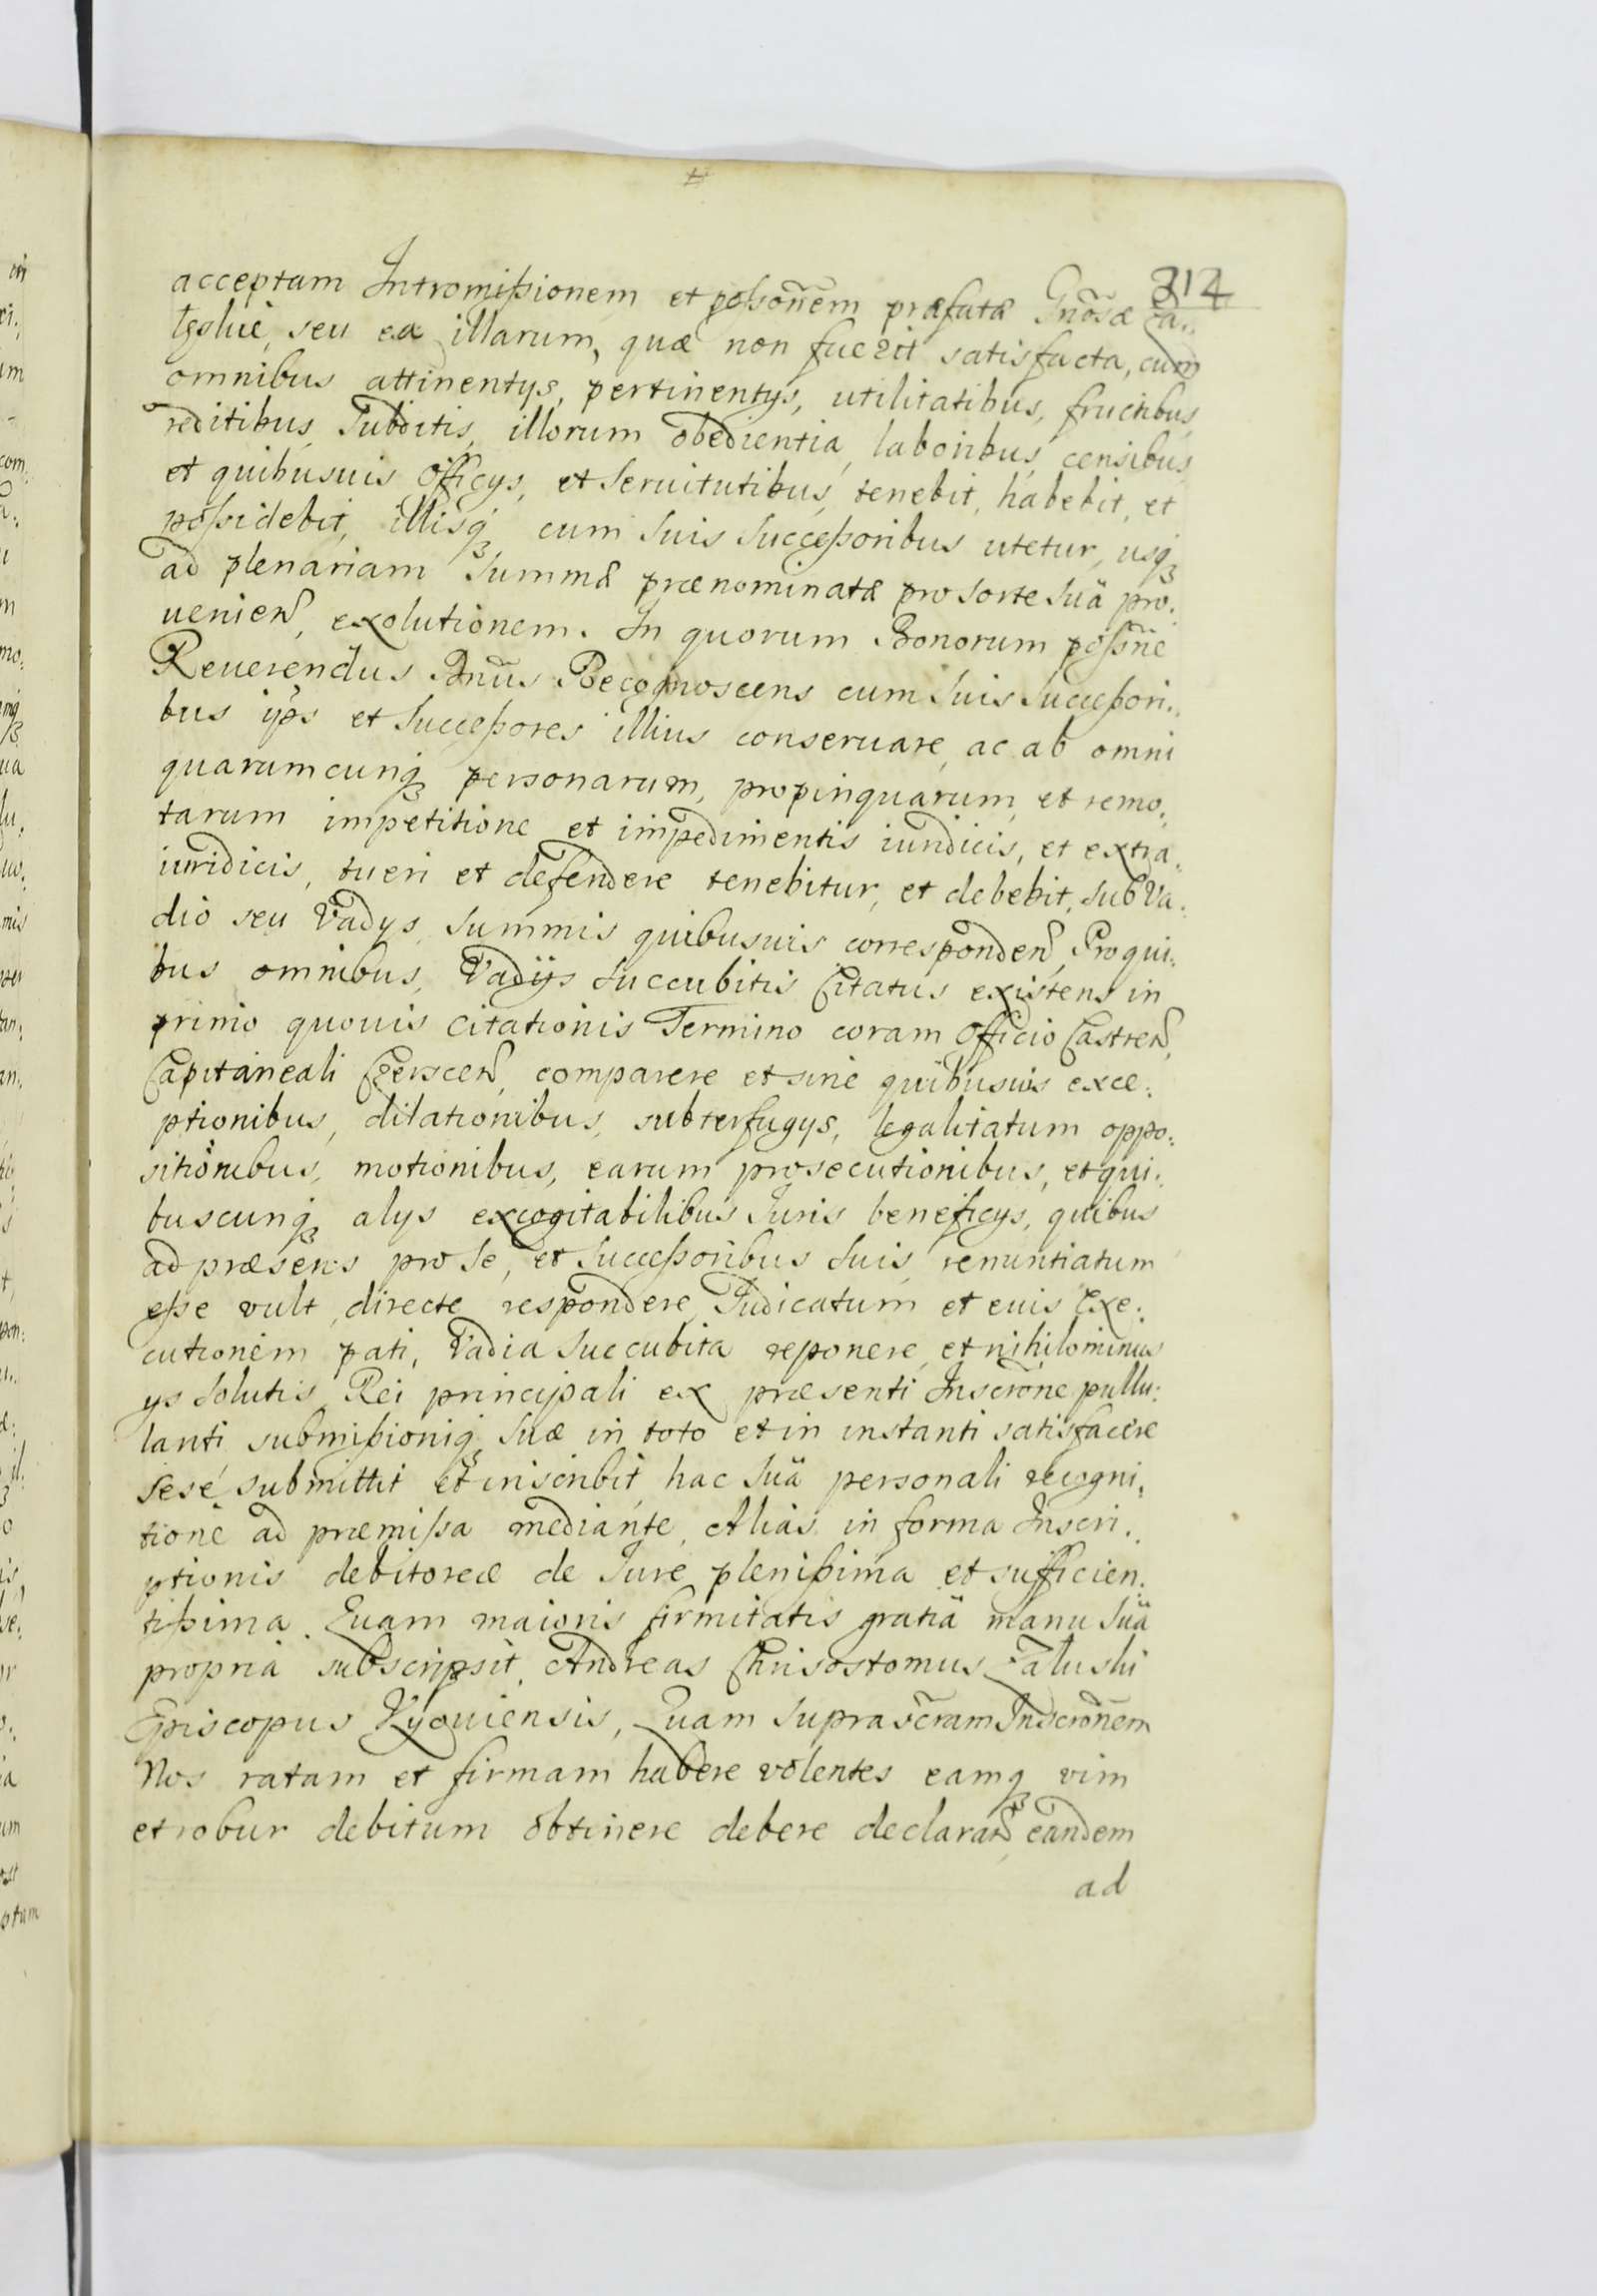 312
acceptam Intromißionem et poßonem præfatæ Gnosæ Za..
luskie, seu ea illarum, quæ non fuerit satisfacta, cum
omnibus attinentys, pertinentys, utilitatibus, fructibus
reditibus, Subditis, illorum obedientia, laboribus, censibus
et quibusuis Officys, et Seruitutibus, tenebit, habebit, et
poßidebit, illisq cum Suis Succeßoribus utetur, usq
ad plenariam Summæ prænominatæ pro Sorte Suä pro.
uenien, exolutionem. In quorum Bonorum poßne
Reuerendus Dnus Recognoscens cum Suis Succeßori..
bus yps et Succeßores illius conseruare, ac ab omni
quarumcunq personarum, propinquarum, et remo.
tarum impetitione et impedimentis iuridicis, et extra.
iuridicis, tueri et defendere tenebitur, et debebit, Sub Va.
dio seu Vadys Summis quibusuis corresponden, Pro qui.
bus omnibus, Vadijs Succubitis Citatus existens in
primo quouis Citationis Termino coram Officio Castren,
Capitaneali Czerscen, comparere et sine quibusuis exce.
ptionibus, dilationibus, subterfugys, legalitatum oppo.
sitionibus, motionibus, earum prosecutionibus, et qui.
buscunq alys excogitabilibus Iuris beneficys, quibus
ad præsens pro Se, et Succeßoribus Suis, renuntiatum
eße vult, directe respondere, Iudicatum et euis Exe.
cutionem pati, Vadia Succubita reponere, et nihilominus
ys Solutis, Rei principali ex præsenti Inscrone pullu.
lanti, submißioniq Suæ in toto et in instanti satisfacere
sese submittit et inscribit, hac Suä personali recogni.
tione ad præmißa mediante, Alias in forma Inscri.
ptionis debitoreæ de Iure plenißima et sufficien.
tißima. Quam maioris firmitatis gratiä manu Suä
propria subscripsit, Andreas Chrisostomus Zaluski
Episcopus Kyouiensis, Quam Suprascram Inscronem
Nos ratam et firmam habere volentes eamq vim
et robur debitum obtinere debere declaran, eandem
ad